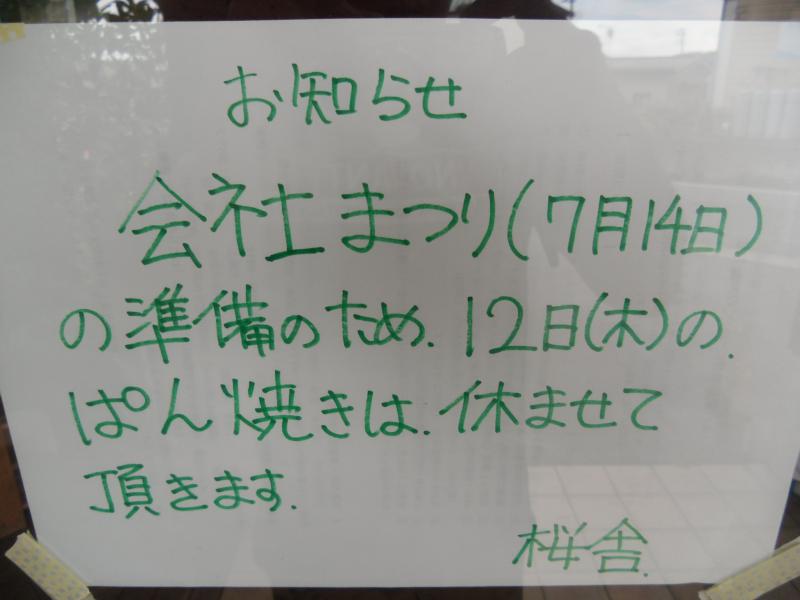 お知らせ
会社まつり(7月14日)
の準備のため.12日(木)の.
ぱん焼きは.休ませて
頂きます.
桜舎.